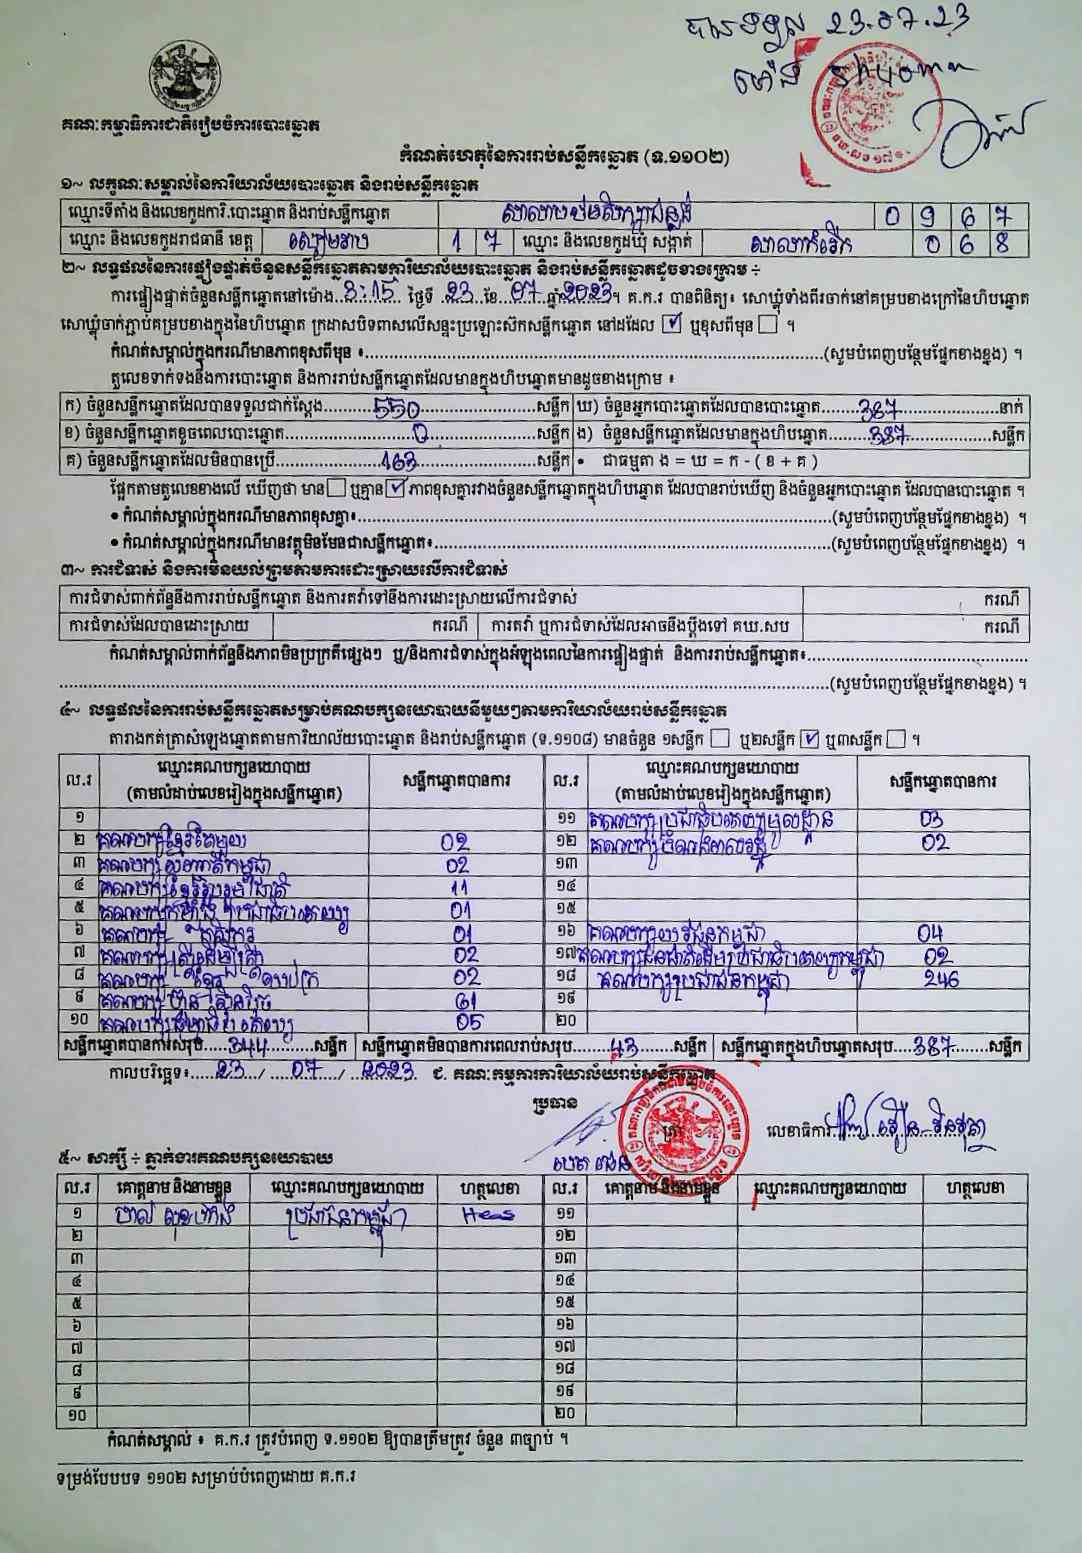 បានទទួល 23.07.23
ម៉ោង
គណៈកម្មាធិការជាតិរៀបចំការបោះឆ្នោត
កំណត់ហេតុនៃការរាប់សន្លឹកឆ្នោត (ទ.១១០២)
១~ លក្ខណៈសម្គាល់នៃការិយាល័យបោះឆ្នោត និងរាប់សន្លឹកឆ្នោត
ឈ្មោះទីតាំង និងលេខកូដការិ.បោះឆ្នោត និងរាប់សន្លឹកឆ្នោត 0 9 6 7
ឈ្មោះ និងលេខកូដរាជធានី ខេត្ត សៀមរាប 1 7 ឈ្មោះ និងលេខកូដឃុំ សង្កាត់ សាលាកំរើក 0 6 8
២~ លទ្ធផលនៃការផ្ទៀងផ្ទាត់ចំនួនសន្លឹកឆ្នោតតាមការិយាល័យបោះឆ្នោត និងរាប់សន្លឹកឆ្នោតដូចខាងក្រោម ÷
ការផ្ទៀងផ្ទាត់ចំនួនសន្លឹកឆ្នោតនៅម៉ោង 3:15 ថ្ងៃទី 23 ខែ 07 ឆ្នាំ 2023។ គ.ក.រ បានពិនិត្យ៖ សោឃ្លុំទាំងពីរចាក់នៅគម្របខាងក្រៅនៃហិបឆ្នោត
សោឃ្លុំចាក់ភ្ជាប់គម្របខាងក្នុងនៃហិបឆ្នោត ក្រដាសបិទពាសលើសន្ទះប្រឡោះស៊កសន្លឹកឆ្នោត នៅដដែល ☑ ឬខុសពីមុន ☐ ។
កំណត់សម្គាល់ក្នុងករណីមានភាពខុសពីមុន ៖ (សូមបំពេញបន្ថែមផ្នែកខាងខ្នង) ។
តួលេខទាក់ទងនឹងការបោះឆ្នោត និងការរាប់សន្លឹកឆ្នោតដែលមានក្នុងហិបឆ្នោតមានដូចខាងក្រោម ៖
ក) ចំនួនសន្លឹកឆ្នោតដែលបានទទួលជាក់ស្តែង 550 សន្លឹក ឃ) ចំនួនអ្នកបោះឆ្នោតដែលបានបោះឆ្នោត 387 នាក់
ខ) ចំនួនសន្លឹកឆ្នោតខូចពេលបោះឆ្នោត 0 សន្លឹក ង) ចំនួនសន្លឹកឆ្នោតដែលមានក្នុងហិបឆ្នោត 387 សន្លឹក
គ) ចំនួនសន្លឹកឆ្នោតដែលមិនបានប្រើ 163 សន្លឹក • ជាធម្មតា ង = ឃ = ក - ( ខ + គ )
ផ្អែកតាមតួលេខខាងលើ ឃើញថា មាន ☐ ឬគ្មាន ☑ ភាពខុសគ្នារវាងចំនួនសន្លឹកឆ្នោតក្នុងហិបឆ្នោត ដែលបានរាប់ឃើញ និងចំនួនអ្នកបោះឆ្នោត ដែលបានបោះឆ្នោត ។
• កំណត់សម្គាល់ក្នុងករណីមានភាពខុសគ្នា៖ (សូមបំពេញបន្ថែមផ្នែកខាងខ្នង) ។
• កំណត់សម្គាល់ក្នុងករណីមានវត្ថុមិនមែនជាសន្លឹកឆ្នោត៖ (សូមបំពេញបន្ថែមផ្នែកខាងខ្នង) ។
៣~ ការជំទាស់ និងការមិនយល់ព្រមតាមការដោះស្រាយលើការជំទាស់
ការជំទាស់ពាក់ព័ន្ធនឹងការរាប់សន្លឹកឆ្នោត និងការតវ៉ាទៅនឹងការដោះស្រាយលើការជំទាស់ ករណី
ការជំទាស់ដែលបានដោះស្រាយ ករណី ការតវ៉ា ឬការជំទាស់ដែលអាចនឹងប្តឹងទៅ គឃ.សប ករណី
កំណត់សម្គាល់ពាក់ព័ន្ធនឹងភាពមិនប្រក្រតីផ្សេងៗ ឬ/និងការជំទាស់ក្នុងអំឡុងពេលនៃការផ្ទៀងផ្ទាត់ និងការរាប់សន្លឹកឆ្នោត៖
(សូមបំពេញបន្ថែមផ្នែកខាងខ្នង) ។
៤~ លទ្ធផលនៃការរាប់សន្លឹកឆ្នោតសម្រាប់គណបក្សនយោបាយនីមួយៗតាមការិយាល័យរាប់សន្លឹកឆ្នោត
តារាងកត់ត្រាសំឡេងឆ្នោតតាមការិយាល័យបោះឆ្នោត និងរាប់សន្លឹកឆ្នោត (ទ.១១០៨) មានចំនួន ១សន្លឹក ☐ ឬ២សន្លឹក ☑ ឬ៣សន្លឹក ☐ ។
ល.រ ឈ្មោះគណបក្សនយោបាយ (តាមលំដាប់លេខរៀងក្នុងសន្លឹកឆ្នោត) សន្លឹកឆ្នោតបានការ ល.រ ឈ្មោះគណបក្សនយោបាយ (តាមលំដាប់លេខរៀងក្នុងសន្លឹកឆ្នោត) សន្លឹកឆ្នោតបានការ
១ ១១ គណបក្សប្រជាធិបតេយ្យមូលដ្ឋាន 03
២ គណបក្សខ្មែរតែមួយ 02 ១២ គណបក្ស 02
៣ គណបក្ស 02 ១៣
៤ គណបក្សខ្មែររួបរួមជាតិ 11 ១៤
៥ គណបក្សកម្លាំងប្រជាធិបតេយ្យ 01 ១៥
៦ គណបក្សកសិករ 01 ១៦ គណបក្សយុវជនកម្ពុជា 04
៧ គណបក្សស្ត្រីដើម្បីស្ត្រី 02 ១៧ 02
៨ គណបក្ស 02 ១៨ គណបក្សប្រជាជនកម្ពុជា 246
៩ គណបក្ស 61 ១៩
១០ គណបក្ស 05 ២០
សន្លឹកឆ្នោតបានការសរុប 344 សន្លឹក សន្លឹកឆ្នោតមិនបានការពេលរាប់សរុប 43 សន្លឹក សន្លឹកឆ្នោតក្នុងហិបឆ្នោតសរុប 387 សន្លឹក
កាលបរិច្ឆេទ៖ 23 / 07 / 2023 ជ. គណៈកម្មការការិយាល័យរាប់សន្លឹកឆ្នោត
ប្រធាន ត្រា លេខាធិការ
៥~ សាក្សី ÷ ភ្នាក់ងារគណបក្សនយោបាយ
ល.រ គោត្តនាម និងនាមខ្លួន ឈ្មោះគណបក្សនយោបាយ ហត្ថលេខា ល.រ គោត្តនាម និងនាមខ្លួន ឈ្មោះគណបក្សនយោបាយ ហត្ថលេខា
១ ប្រជាជនកម្ពុជា ១១
២ ១២
៣ ១៣
៤ ១៤
៥ ១៥
៦ ១៦
៧ ១៧
៨ ១៨
៩ ១៩
១០ ២០
កំណត់សម្គាល់ ៖ គ.ក.រ ត្រូវបំពេញ ទ.១១០២ ឱ្យបានត្រឹមត្រូវ ចំនួន ៣ច្បាប់ ។
ទម្រង់បែបបទ ១១០២ សម្រាប់បំពេញដោយ គ.ក.រ